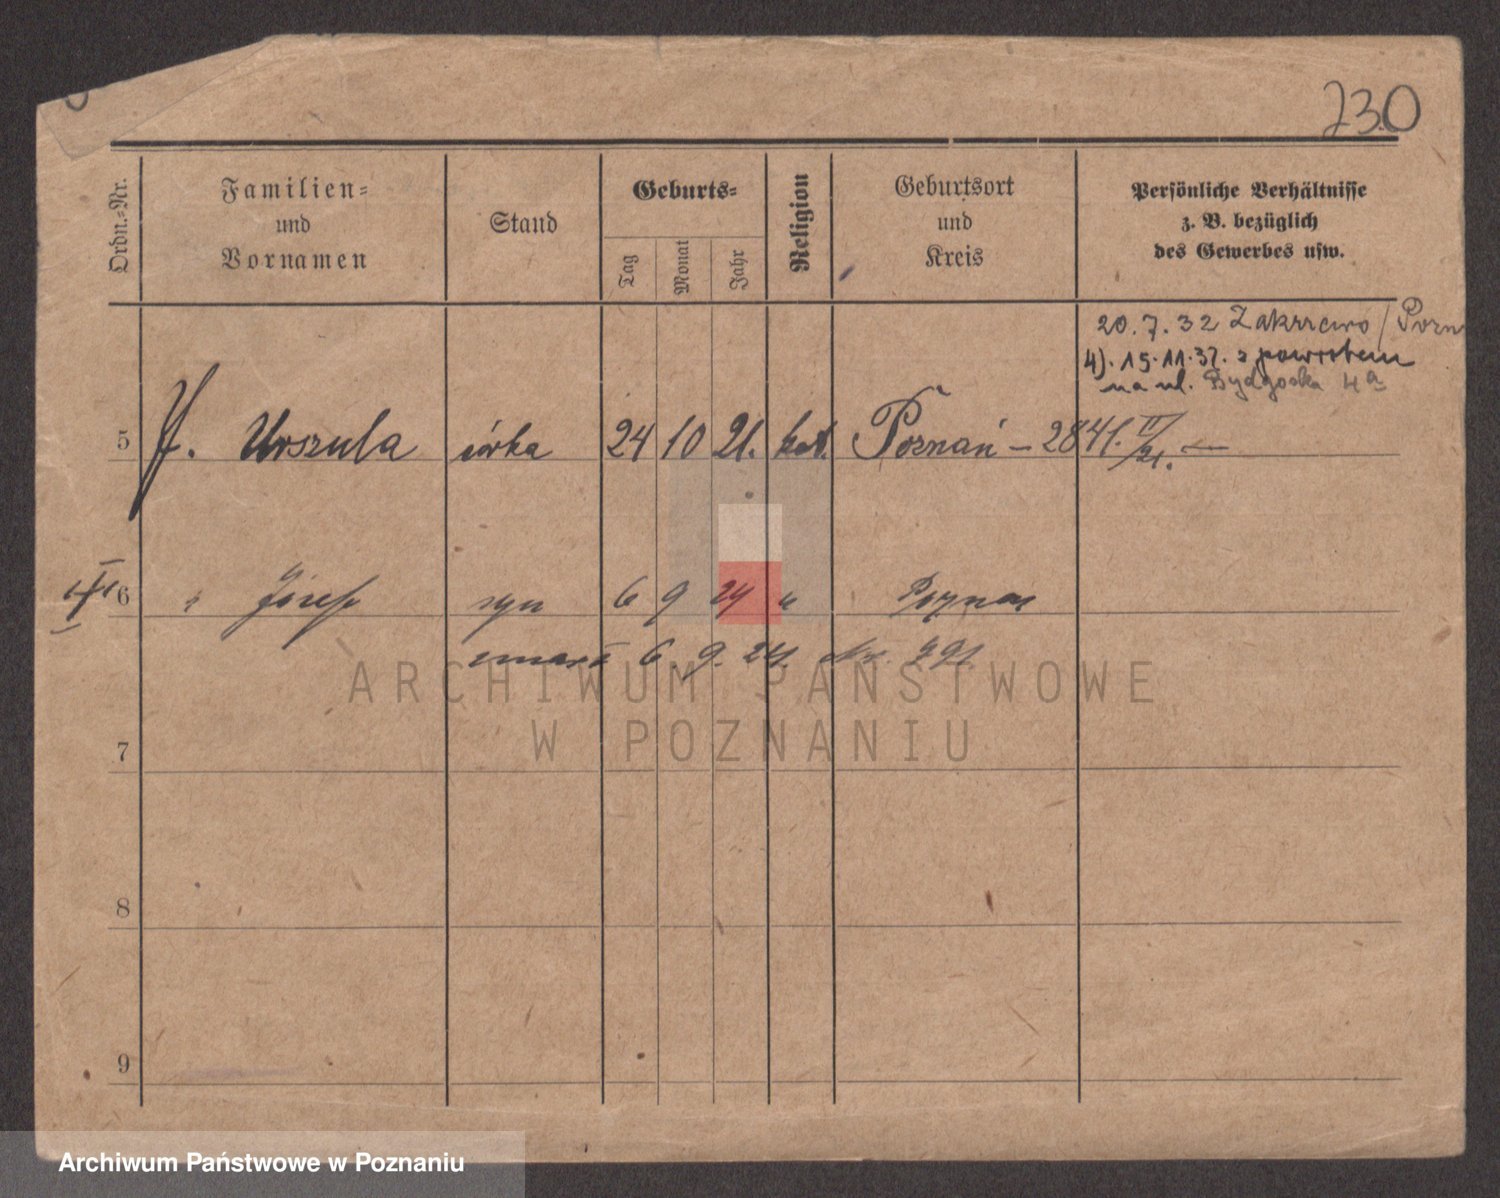 230
Ordn.=Nr.
Familien=
und
Vornamen
Stand
Geburts=
Tag
Monat
Jahr
Religion
Geburtsort
und
Kreis
Persönliche Verhältnisse
z. B. bezüglich
des Gewerbes usw.
20.7.32 Zakrzewo / Pozn
4). 15.11.32. z powrotem
na ul. Bydgoska 4a
5 Urszula córka 24 10 21. kat. Poznań – 2841. II/21. —
6 " Józef syn 6 9 24 " Poznań
zmarł 6 9. 24. Nr.
7
8
9
ARCHIWUM PAŃSTWOWE
W POZNANIU
Archiwum Państwowe w Poznaniu